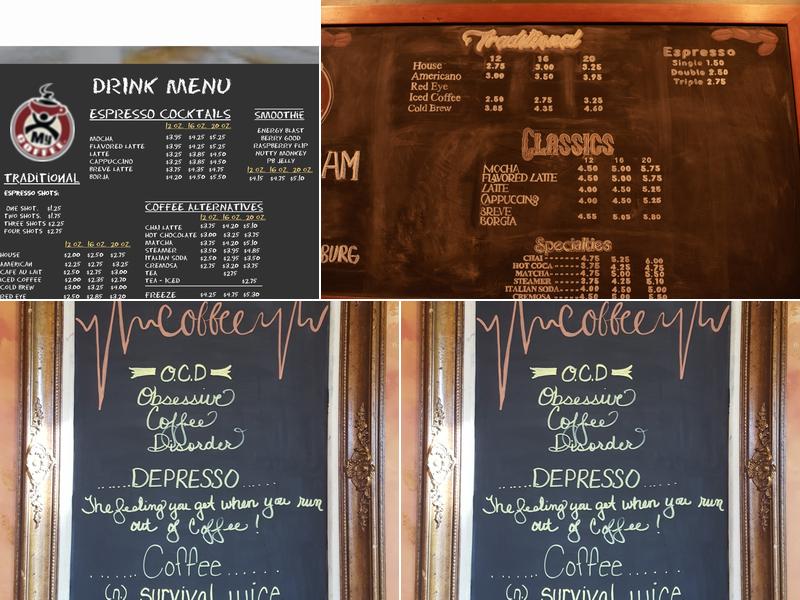 DRINK MENU
My
COFFEE
ESPRESSO COCKTAILS
12 OZ. 16 OZ. 20 OZ.
MOCHA $3.95 $4.25 $5.25
FLAVORED LATTE $3.95 $4.25 $5.25
LATTE $3.25 $3.85 $4.50
CAPPUCCINO $3.25 $3.85 $4.50
BREVE LATTE $3.75 $4.35 $4.95
BORJA $4.20 $4.50 $5.50
SMOOTHIE
ENERGY BLAST
BERRY GOOD
RASPBERRY FLIP
NUTTY MONKEY
PB JELLY
12 OZ. 16 OZ. 20 OZ.
$4.15 $4.75 $5.10
TRADITIONAL
ESPRESSO SHOTS:
ONE SHOT. $1.25
TWO SHOTS. $1.75
THREE SHOTS $2.25
FOUR SHOTS $2.75
12 OZ. 16 OZ. 20 OZ.
HOUSE $2.00 $2.50 $2.75
AMERICAN $2.25 $2.75 $3.25
CAFE AU LAIT $2.50 $2.75 $3.00
ICED COFFEE $2.00 $2.50 $2.75
COLD BREW $3.00 $3.50 $4.00
RED EYE $2.50 $2.85 $3.20
COFFEE ALTERNATIVES
12 OZ. 16 OZ. 20 OZ.
CHAI LATTE $3.75 $4.20 $5.10
HOT CHOCOLATE $3.00 $3.25 $3.75
MATCHA $3.75 $4.20 $5.10
STEAMER $3.50 $3.95 $4.85
ITALIAN SODA $2.50 $2.95 $3.75
CREMOSA $2.75 $3.25 $4.00
TEA $2.75
TEA - ICED $2.75
FREEZE $4.25 $4.75 $5.30
Traditional
12 16 20
House 2.75 3.00 3.25
Americano 3.00 3.50 3.95
Red Eye
Iced Coffee 2.50 2.75 3.25
Cold Brew 3.85 4.35 4.60
Espresso
Single 1.50
Double 2.50
Triple 2.75
AM
BURG
CLASSICS
12 16 20
MOCHA 4.50 5.00 5.75
FLAVORED LATTE 4.50 5.00 5.75
LATTE 4.00 4.50 5.25
CAPPUCCINO 4.00 4.50 5.25
BREVE
BORGIA 4.55 5.05 5.80
Specialties
CHAI 4.75 5.25 6.00
HOT COCA 3.75 4.25 4.75
MATCHA 4.75 5.00 5.75
STEAMER 3.75 4.25 5.10
ITALIAN SODA 4.00 4.50 5.25
CREMOSA
coffee
O.C.D
Obsessive
Coffee
Disorder
......DEPRESSO.....
The feeling you get when you run
out of Coffee!
Coffee
(n) survival juice
coffee
O.C.D
Obsessive
Coffee
Disorder
......DEPRESSO.....
The feeling you get when you run
out of Coffee!
Coffee
(n) survival juice